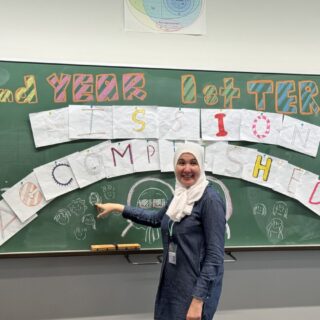 nd YEAR 1st TER
MISSION
ACCOMPLISHED